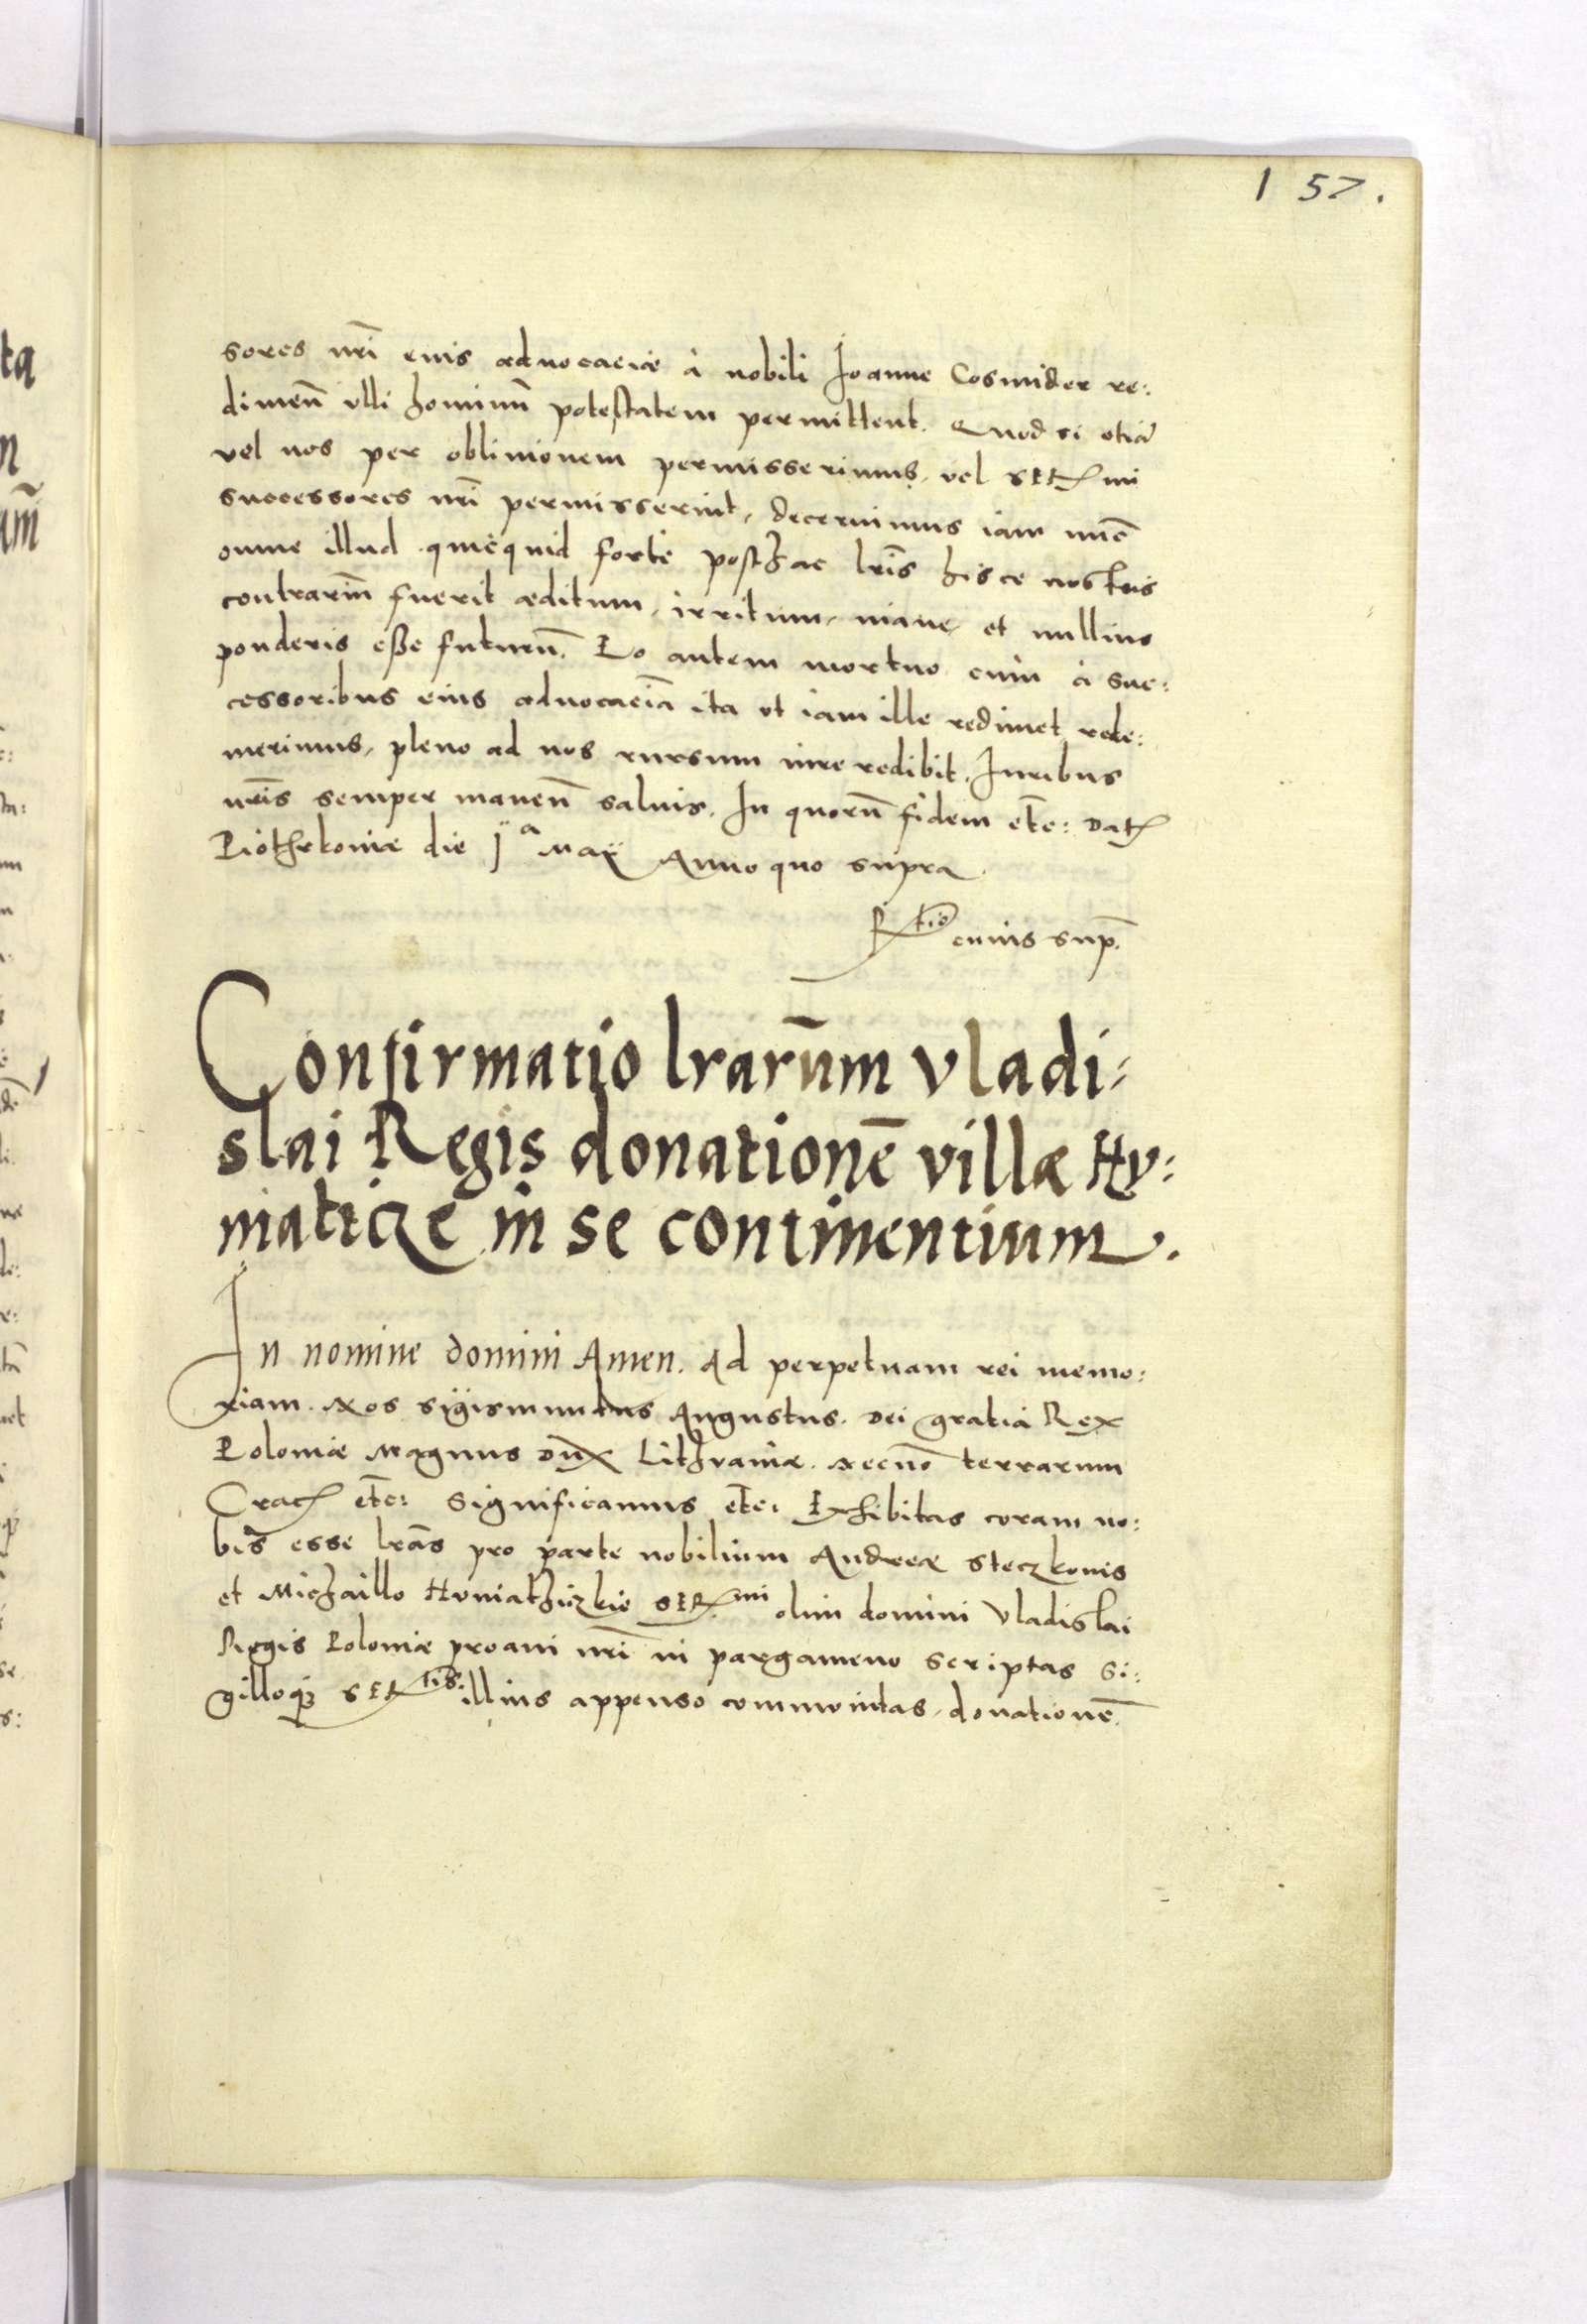 157.
sores nri̅ euis aduocaciæ à nobili Joanne Cosmider re:
dimen̅ ulli hominu̅ potestatem permittent. Quod si etia̅
vel nos per obliuionem permisserimus, vel SERmi
successores nri̅ permisserint, decernimus iam nu̅c
omne illud quicquid forte posthac lri̅s hisce nostris
contrariu̅ fuerit æditum, irritum, inane et nullius
ponderis eße futuru̅. Eo autem mortuo cum à suc:
cessoribus eius aduocacia̅ ita ut iam ille redimet rede:
merimus, pleno ad nos rursum iure redibit. Juribus
nri̅s semper manen̅ saluis. In quoru̅ fidem etc: Dat
Piothrkoniæ die ja Maÿ Anno quo supra.
Rtio cuius sup.
Confirmatio lraru̅m Vladi-
slai Regis donatione̅ villæ Hv:
niaticze in se continentium.
In nomine domini Amen. Ad perpetuam rei memo:
riam. Nos Sigismundus Augustus. Dei gratia Rex
Poloniæ Magnus Dux Lithuaniæ. Necno̅ terrarum
Crac etc: Significamus etc: Exhibitas coram no:
bis esse lra̅s pro parte nobilium Andreæ Steczkonis
et Michaillo Hvniathiczkie SERmi olim domini Vladislai
Regis Poloniæ proaui nri̅ in pargameno scriptas si:
gilloq3 SERtis illius appenso communitas, donatione̅.